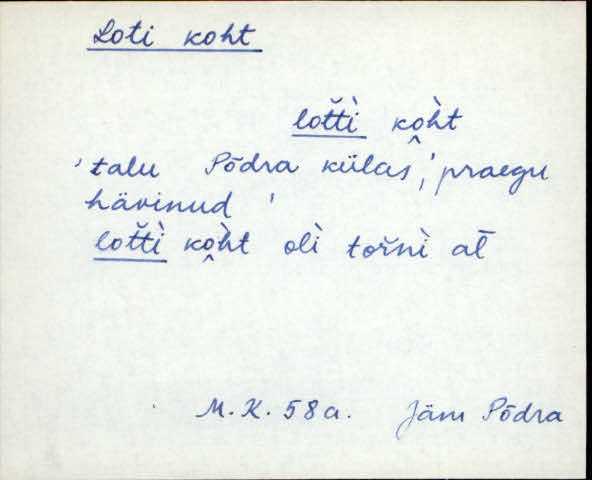 Loti koht
lot̆ti kòh̭t
'talu Põdra külas,' praegu
hävinud '
lot̆ti kòh̭t oĺì tor̆nì at̄
M.K. 58a. Jäm Põdra